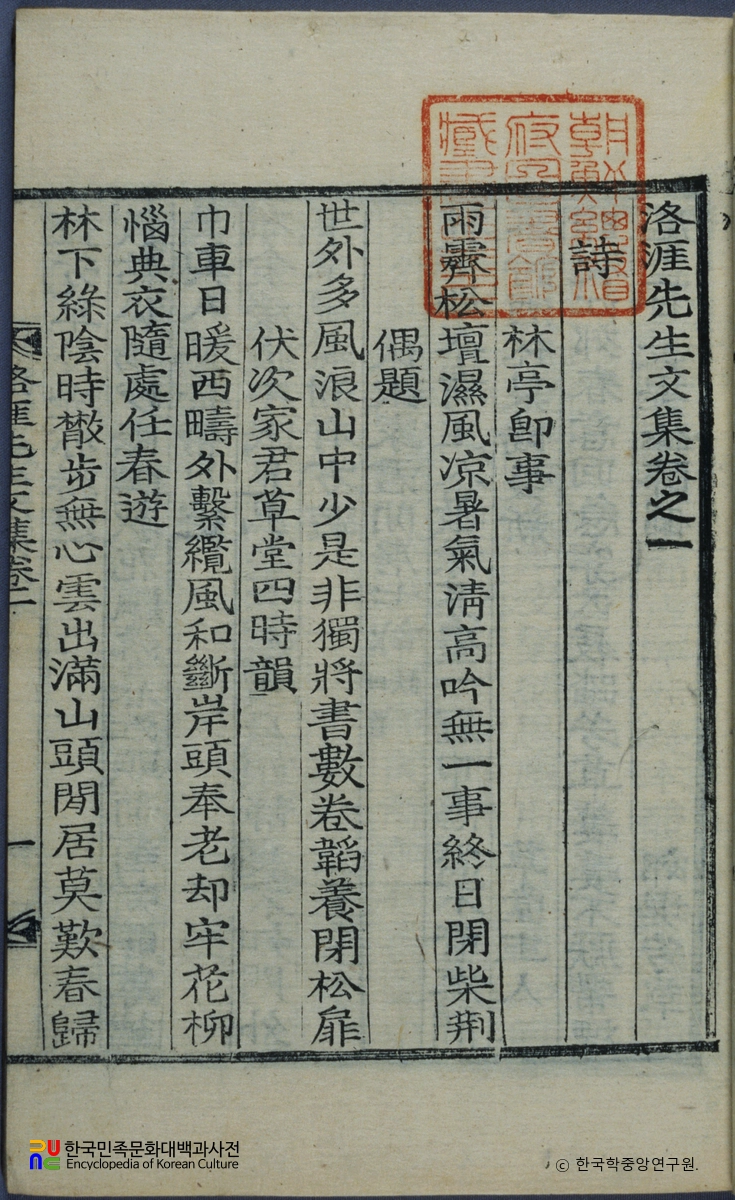 洛涯先生文集卷之一
詩
林亭卽事
雨霽松壇濕風凉暑氣淸高吟無一事終日閉柴荆
偶題
世外多風浪山中少是非獨將書數卷韜養閉松扉
伏次家君草堂四時韻
巾車日暖西疇外繫纜風和斷岸頭奉老却牢花柳
惱典衣隨處任春遊
林下綠陰時散步無心雲出滿山頭閒居莫歎春歸
洛涯先生文集卷一
一
한국민족문화대백과사전
Encyclopedia of Korean Culture
ⓒ 한국학중앙연구원.